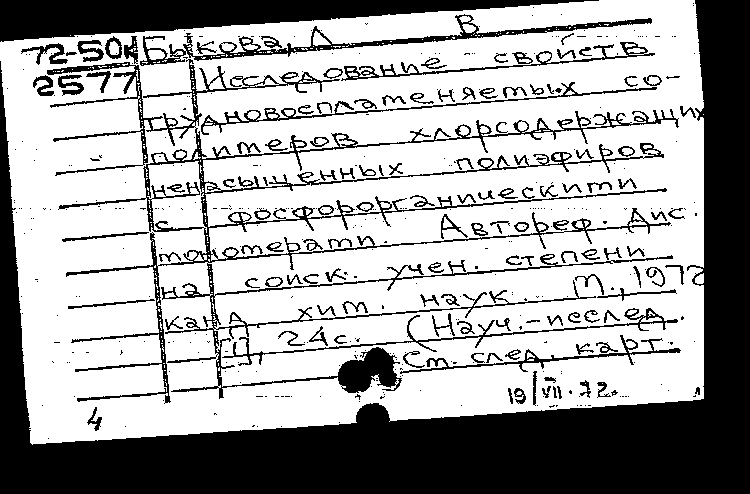 72-50к Быкова, Л В
2577 Исследование свойств
трудновоспламеняемых со-
полимеров хлорсодержащих
ненасыщенных полиэфиров
с фосфорорганическими
мономерами. Автореф. дис.
на соиск. учен. степени
канд. хим. наук. М., 1972
24с. (Науч.-исслед.
Ст. след. карт.
4 19/VII.72.